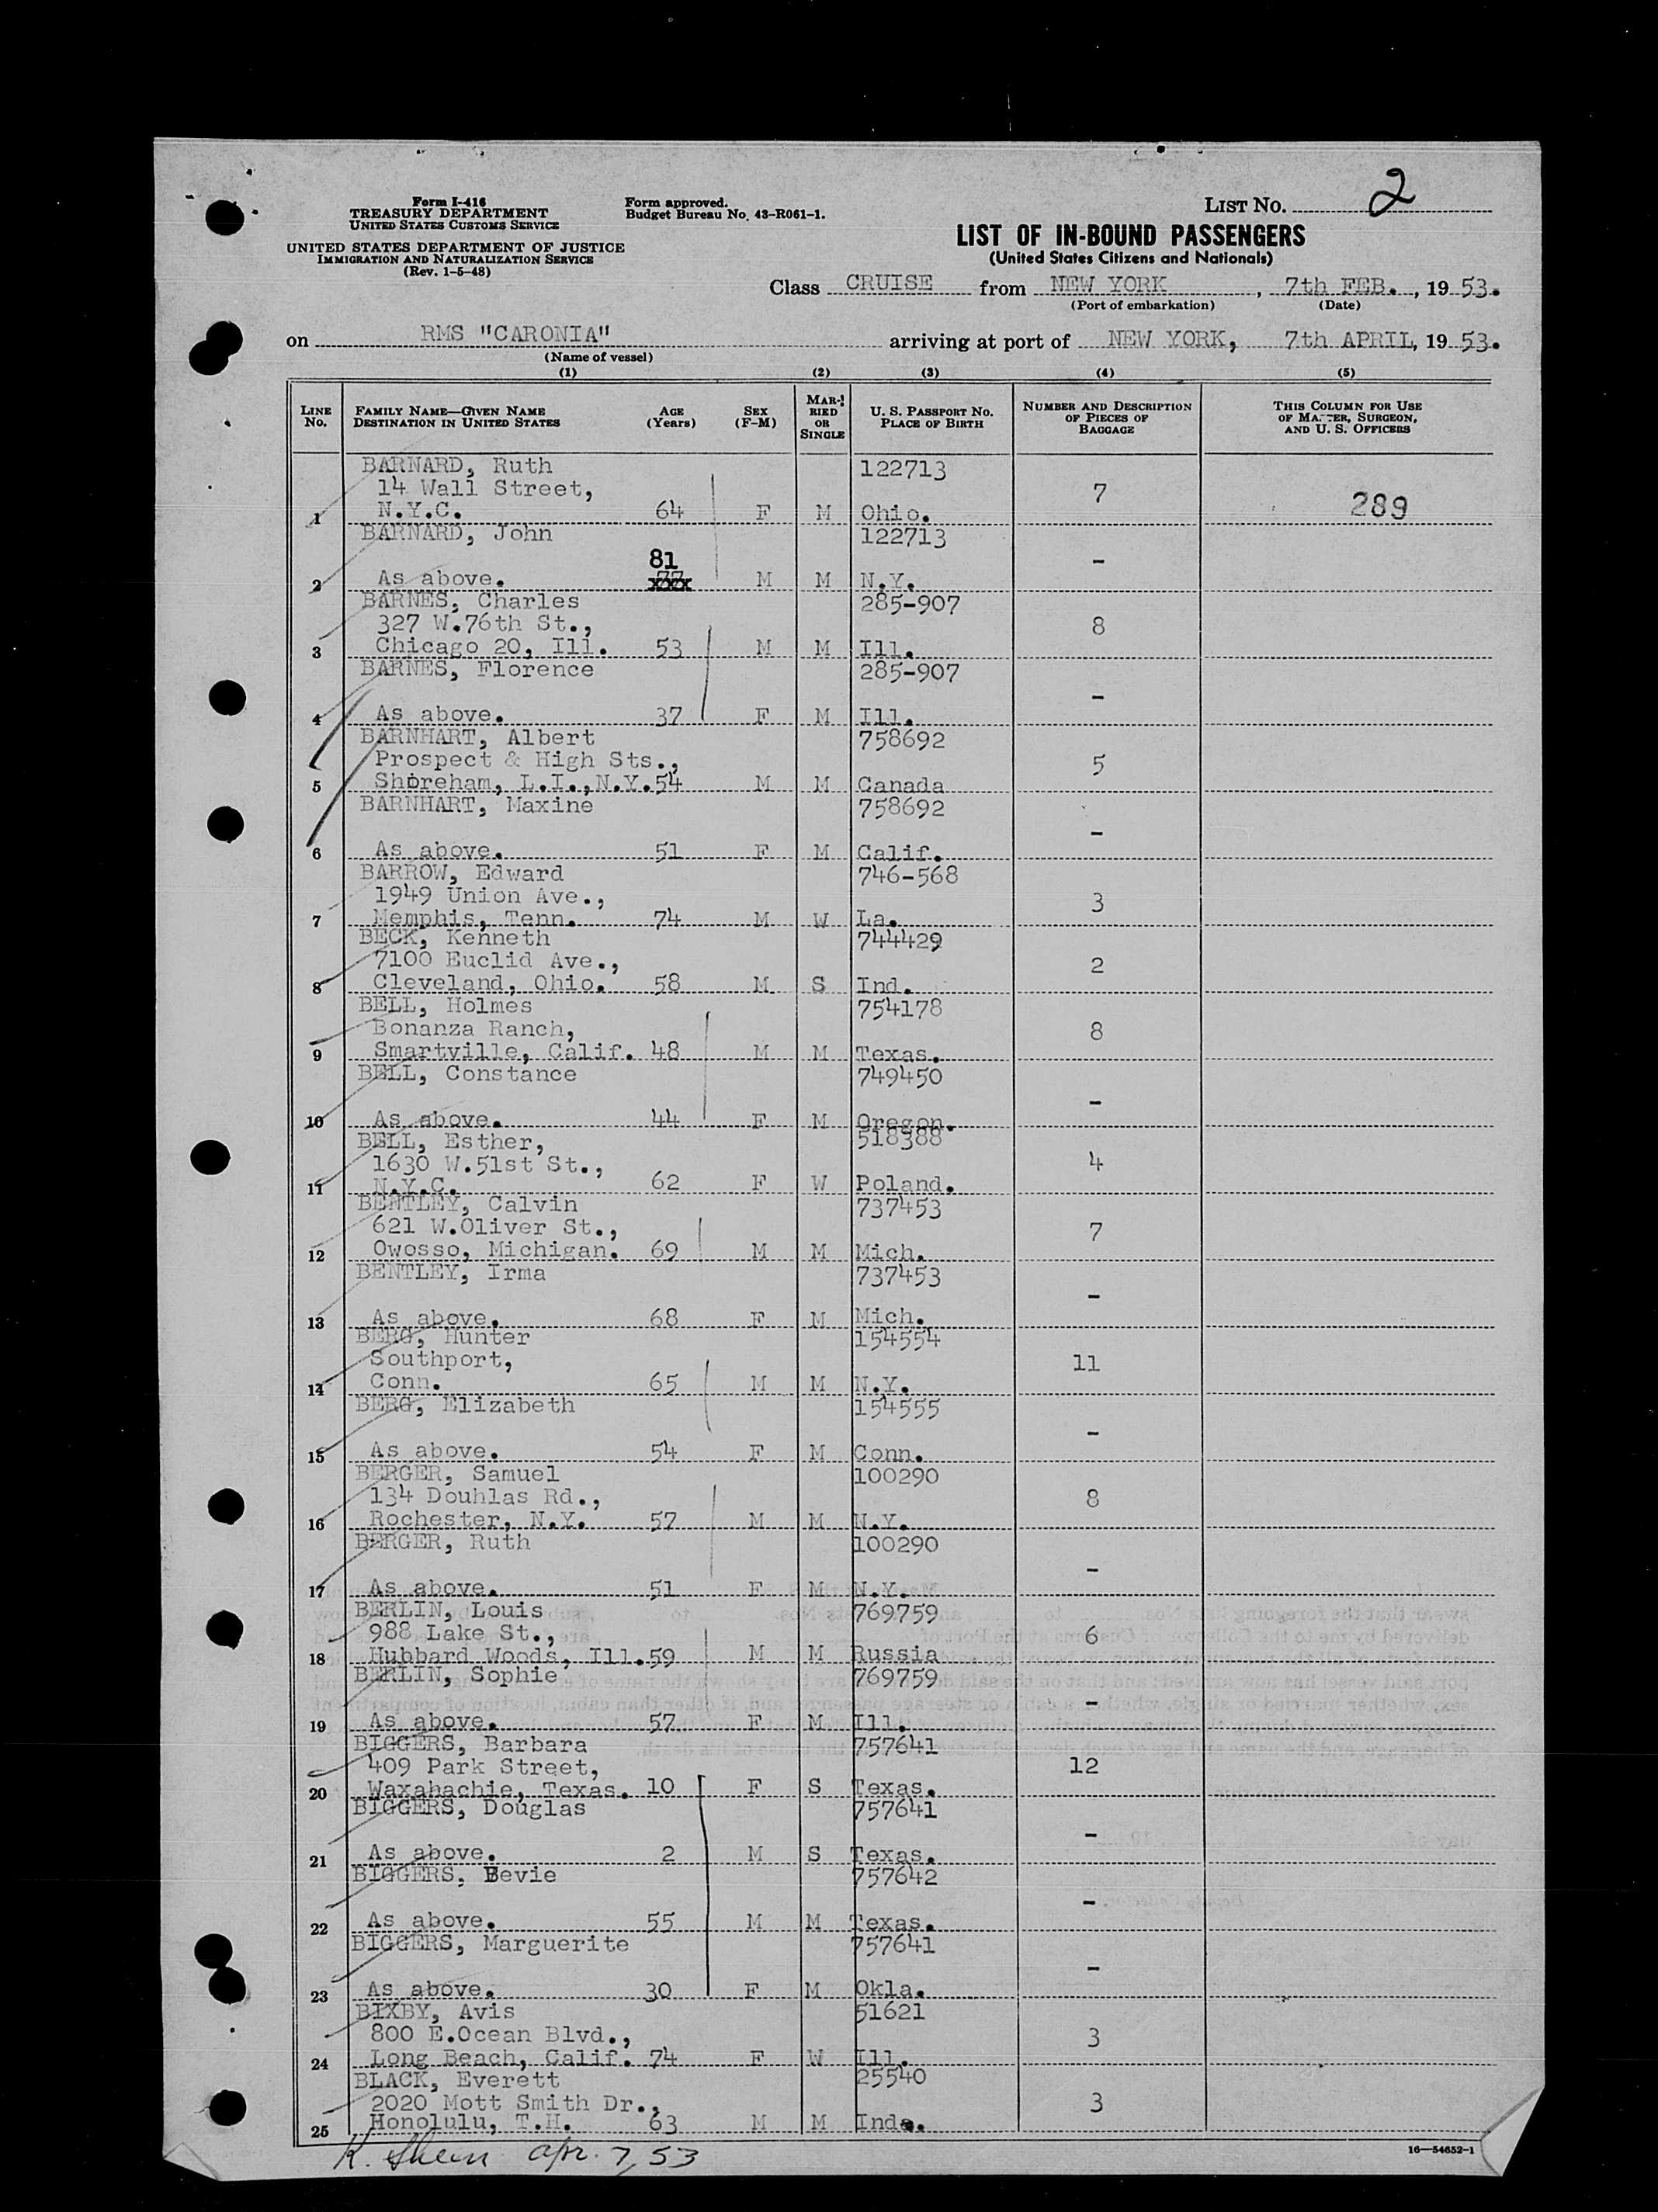 Form I-416
TREASURY DEPARTMENT
UNITED STATES CUSTOMS SERVICE
UNITED STATES DEPARTMENT OF JUSTICE
IMMIGRATION AND NATURALIZATION SERVICE
(Rev. 1-5-48)
Form approved.
Budget Bureau No. 43-R061-1.
LIST NO. 2
LIST OF IN-BOUND PASSENGERS
(United States Citizens and Nationals)
Class CRUISE from NEW YORK, 7th FEB., 19 53.
(Port of embarkation) (Date)
on RMS "CARONIA" arriving at port of NEW YORK, 7th APRIL, 19 53.
(Name of vessel)
(1) (2) (3) (4) (5)
LINE No. FAMILY NAME—GIVEN NAME DESTINATION IN UNITED STATES AGE (Years) SEX (F-M) MARRIED OR SINGLE U. S. PASSPORT NO. PLACE OF BIRTH NUMBER AND DESCRIPTION OF PIECES OF BAGGAGE THIS COLUMN FOR USE OF MASTER, SURGEON, AND U. S. OFFICERS
BARNARD, Ruth 122713
14 Wall Street, 7
1 N.Y.C. 64 F M Ohio. 289
BARNARD, John 122713
81 -
2 As above. M M N.Y.
BARNES, Charles 285-907
327 W.76th St., 8
3 Chicago 20, Ill. 53 M M Ill.
BARNES, Florence 285-907
-
4 As above. 37 F M Ill.
BARNHART, Albert 758692
Prospect & High Sts., 5
5 Shoreham, L.I.,N.Y. 54 M M Canada
BARNHART, Maxine 758692
-
6 As above. 51 F M Calif.
BARROW, Edward 746-568
1949 Union Ave., 3
7 Memphis, Tenn. 74 M W La.
BECK, Kenneth 744429
7100 Euclid Ave., 2
8 Cleveland, Ohio. 58 M S Ind.
BELL, Holmes 754178
Bonanza Ranch, 8
9 Smartville, Calif. 48 M M Texas.
BELL, Constance 749450
-
10 As above. 44 F M Oregon.
BELL, Esther, 518388
1630 W.51st St., 4
11 N.Y.C. 62 F W Poland.
BENTLEY, Calvin 737453
621 W.Oliver St., 7
12 Owosso, Michigan. 69 M M Mich.
BENTLEY, Irma 737453
-
13 As above. 68 F M Mich.
BERG, Hunter 154554
Southport, 11
14 Conn. 65 M M N.Y.
BERG, Elizabeth 154555
-
15 As above. 54 F M Conn.
BERGER, Samuel 100290
134 Douhlas Rd., 8
16 Rochester, N.Y. 57 M M N.Y.
BERGER, Ruth 100290
-
17 As above. 51 F M N.Y.
BERLIN, Louis 769759
988 Lake St., 6
18 Hubbard Woods, Ill. 59 M M Russia
BERLIN, Sophie 769759
-
19 As above. 57 F M Ill.
BIGGERS, Barbara 757641
409 Park Street, 12
20 Waxahachie, Texas. 10 F S Texas.
BIGGERS, Douglas 757641
-
21 As above. 2 M S Texas.
BIGGERS, Bevie 757642
-
22 As above. 55 M M Texas.
BIGGERS, Marguerite 757641
-
23 As above. 30 F M Okla.
BIXBY, Avis 51621
800 E.Ocean Blvd., 3
24 Long Beach, Calif. 74 F W Ill.
BLACK, Everett 25540
2020 Mott Smith Dr., 3
25 Honolulu, T.H. 63 M M Ind.
K. apr. 7, 53
16—54652-1